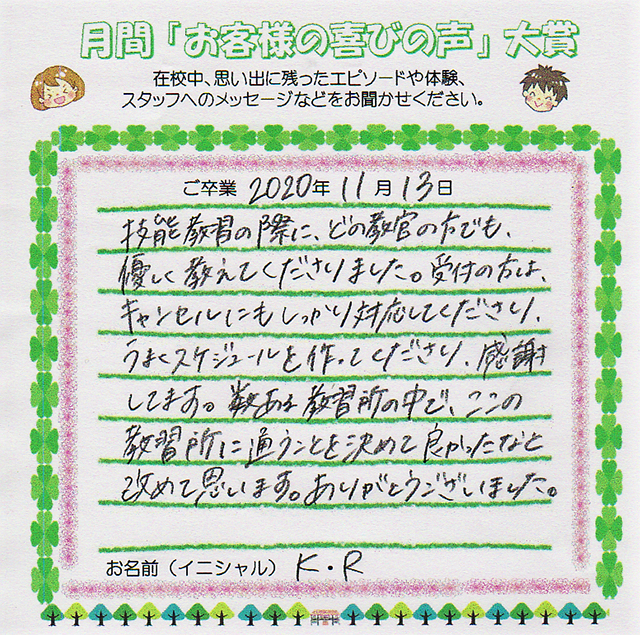 月間「お客様の喜びの声」大賞
在校中、思い出に残ったエピソードや体験、
スタッフへのメッセージなどをお聞かせください。
ご卒業 2020年 11月 13日
技能教習の際に、どの教官の方でも、
優しく教えてくださりました。受付の方は、
キャンセルにもしっかり対応してくださり、
うまくスケジュールを作ってくださり、感謝
してます。数ある教習所の中で、ここの
教習所に通うことを決めて良かったなと
改めて思います。ありがとうございました。
お名前（イニシャル） K・R